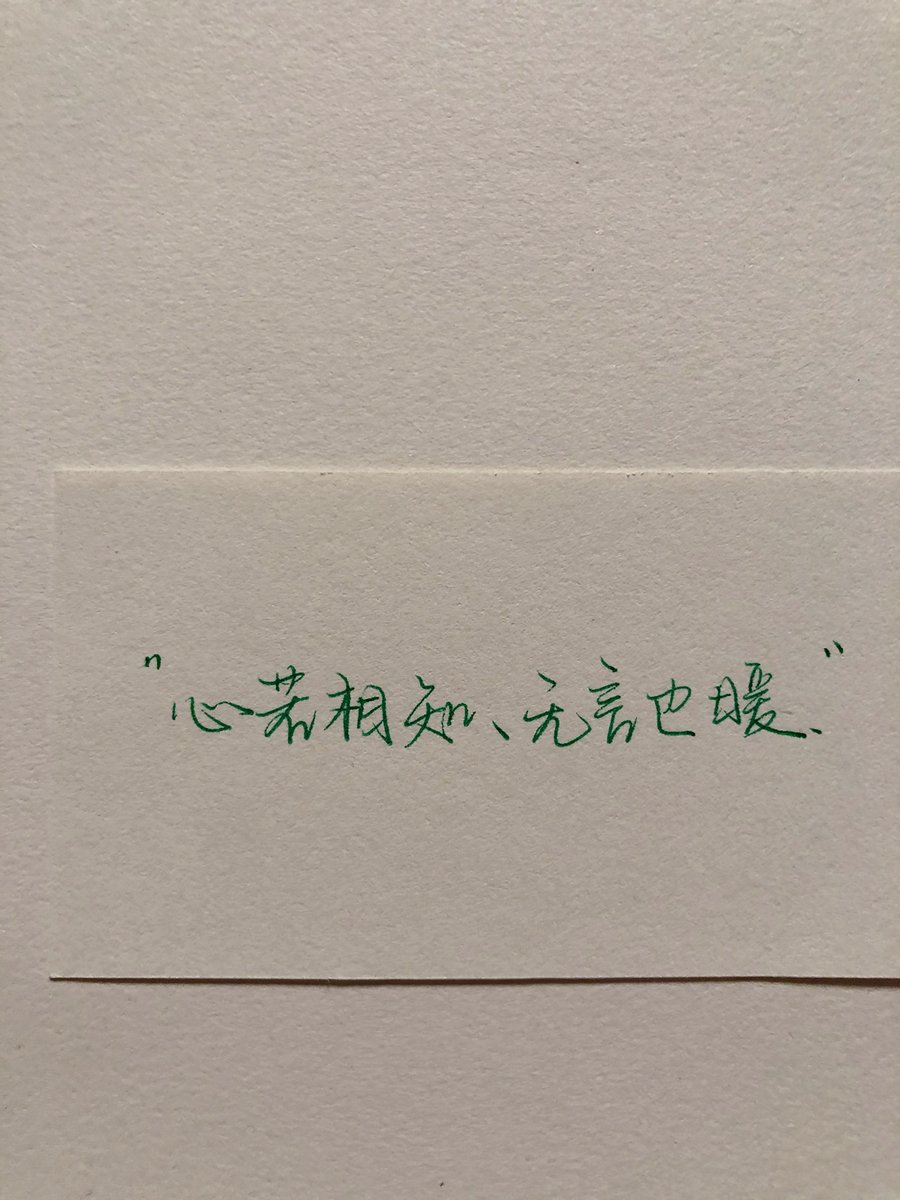 "心若相知、无言也暖."